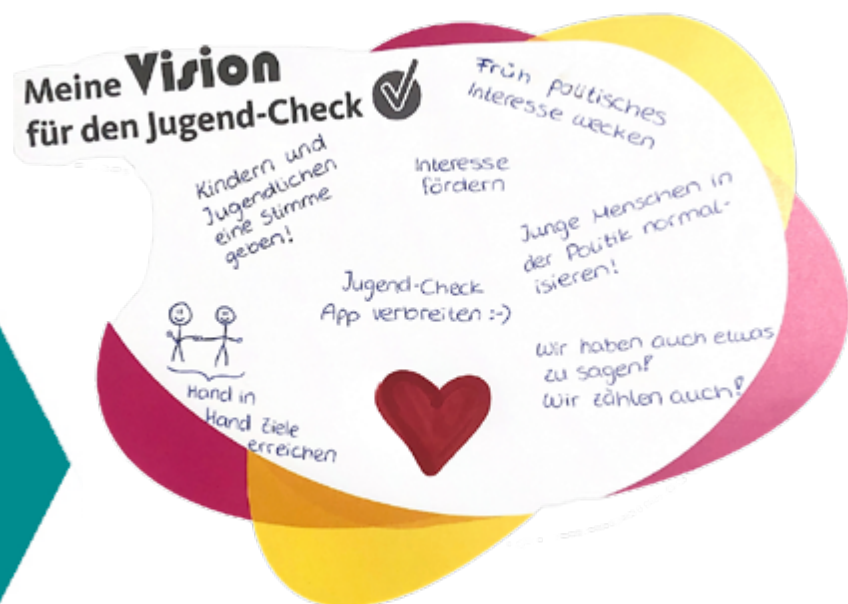 Meine Vision
für den Jugend-Check
Früh politisches
Interesse wecken
Kindern und
Jugendlichen
eine Stimme
geben!
Interesse
fördern
Junge Menschen in
der Politik normal-
isieren!
Jugend-Check
App verbreiten :-)
Wir haben auch etwas
zu sagen!
Wir zählen auch!
Hand in
Hand Ziele
erreichen